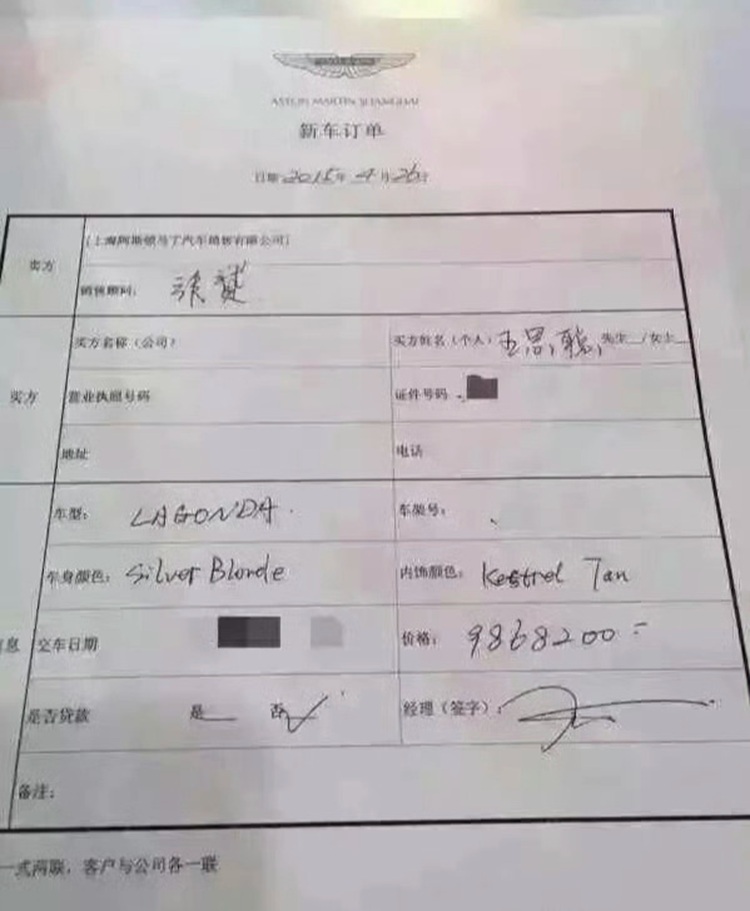 ASTON MARTIN SHANGHAI
新车订单
日期 2015年 4月26日
卖方
(上海阿斯顿马丁汽车销售有限公司)
销售顾问:
买方
买方名称(公司)
买方姓名(个人) 王思聪 先生__/女士__
营业执照号码
证件号码
地址
电话
车型: LAGONDA
车架号:
车身颜色: Silver Blonde
内饰颜色: Kestrel Tan
息
交车日期
价格: 9868200
是否贷款 是__ 否✓
经理(签字):
备注:
一式两联,客户与公司各一联